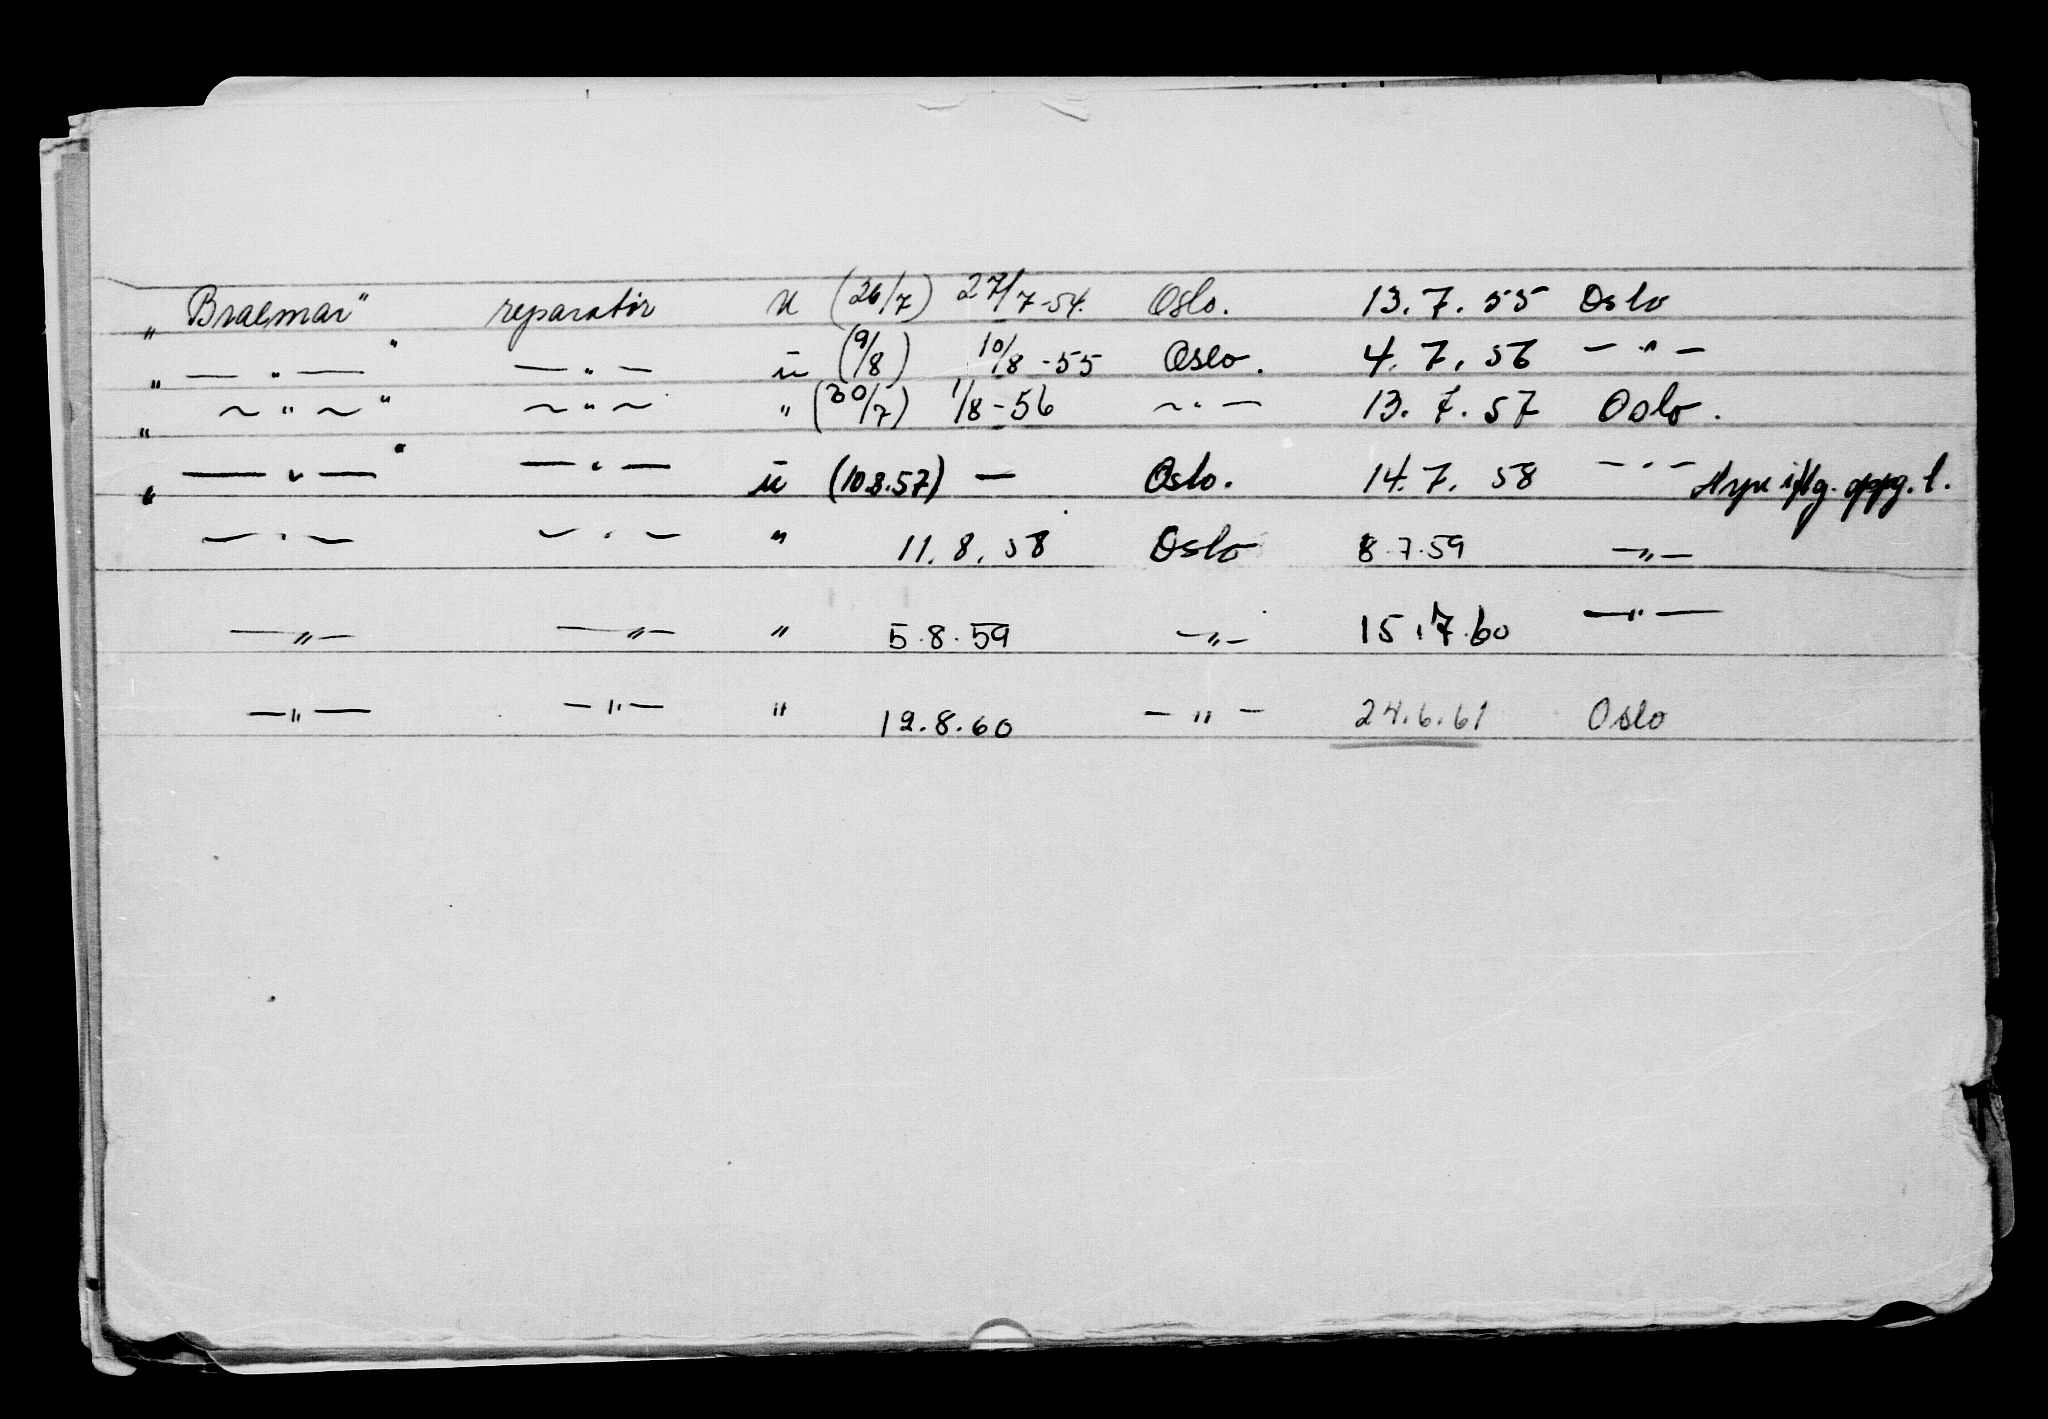 „ Braemar" reparatør u (26/7) 27/7-54. Oslo. 13.7.55 Oslo
„ — " — " — " — u (9/8) 10/8-55 Oslo. 4.7.56 — " —
„ ~ " ~ " ~ " ~ " (30/7) 1/8-56 ~ " — 13.7.57 Oslo.
„ — " — " — " — u (10.8.57) — Oslo. 14.7.58 — " — iflg. oppg.
— " — — " — " 11.8.58 Oslo 8.7.59 — " —
— " — — " — " 5.8.59 — " — 15.7.60 — " —
— " — — " — " 12.8.60 — " — 24.6.61 Oslo